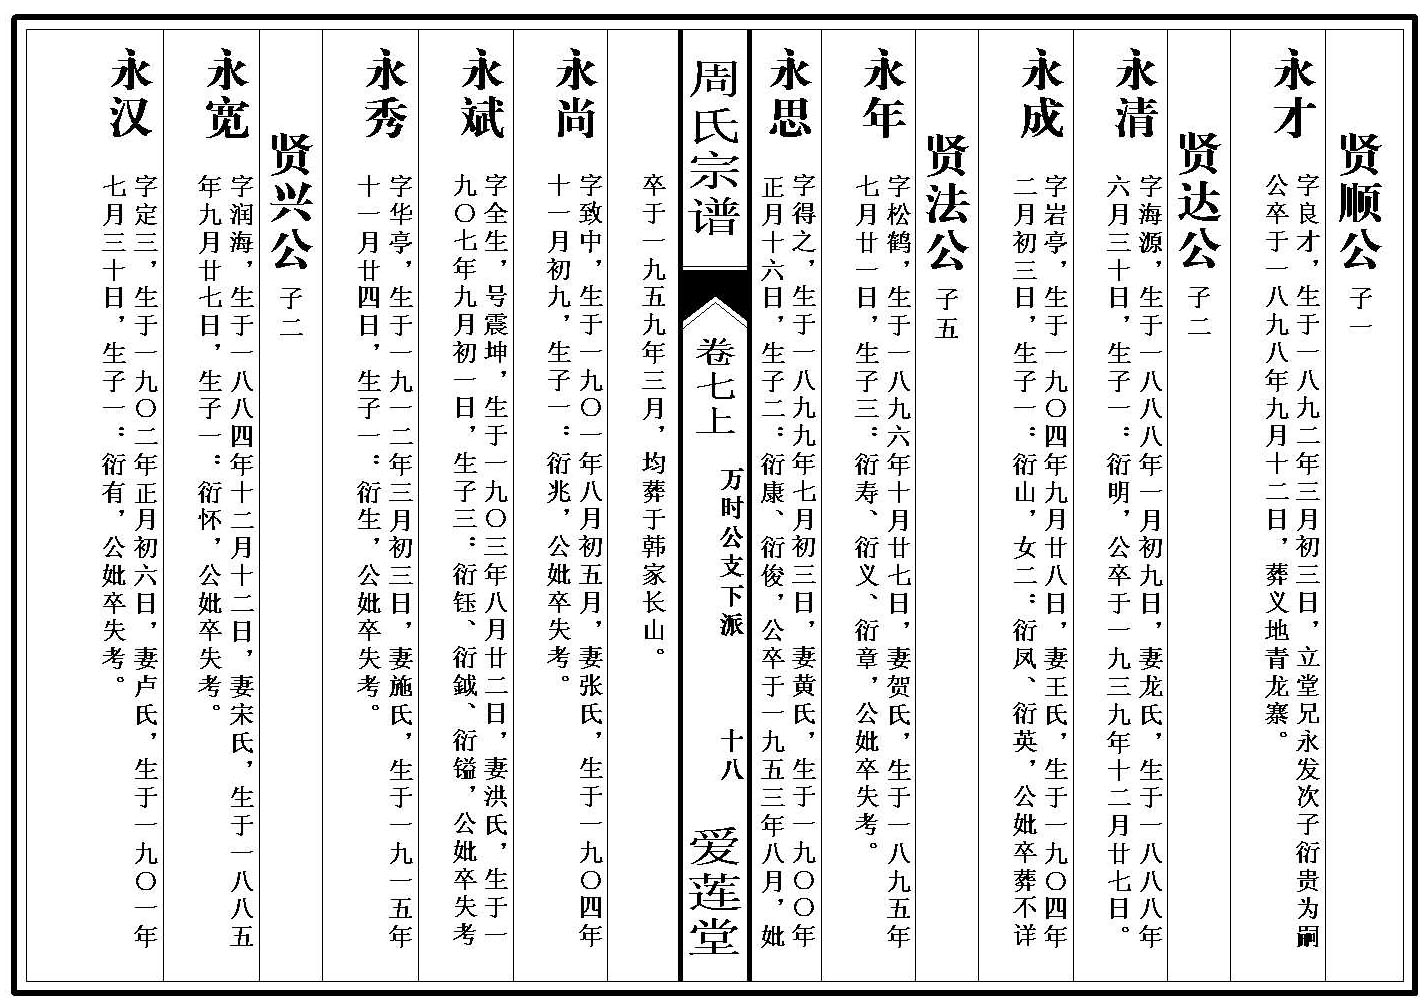 贤顺公 子一
永才
字良才，生于一八九二年三月初三日，立堂兄永发次子衍贵为嗣
公卒于一八九八年九月十二日，葬义地青龙寨。
贤达公 子二
永清
字海源，生于一八八八年一月初九日，妻龙氏，生于一八八八年
六月三十日，生子一：衍明，公卒于一九三九年十二月廿七日。
永成
字岩亭，生于一九〇四年九月廿八日，妻王氏，生于一九〇四年
二月初三日，生子一：衍山，女二：衍凤、衍英，公妣卒葬不详
贤法公 子五
永年
字松鹤，生于一八九六年十月廿七日，妻贺氏，生于一八九五年
七月廿一日，生子三：衍寿、衍义、衍章，公妣卒失考。
永思
字得之，生于一八九九年七月初三日，妻黄氏，生于一九〇〇年
正月十六日，生子二：衍康、衍俊，公卒于一九五三年八月，妣
周氏宗谱
卷七上
万时公支下派
十八
爱莲堂
卒于一九五九年三月，均葬于韩家长山。
永尚
字致中，生于一九〇一年八月初五月，妻张氏，生于一九〇四年
十一月初九，生子一：衍兆，公妣卒失考。
永斌
字全生，号震坤，生于一九〇三年八月廿二日，妻洪氏，生于一
九〇七年九月初一日，生子三：衍钰、衍鉞、衍镒，公妣卒失考
永秀
字华亭，生于一九一二年三月初三日，妻施氏，生于一九一五年
十一月廿四日，生子一：衍生，公妣卒失考。
贤兴公 子二
永宽
字润海，生于一八八四年十二月十二日，妻宋氏，生于一八八五
年九月廿七日，生子一：衍怀，公妣卒失考。
永汉
字定三，生于一九〇二年正月初六日，妻卢氏，生于一九〇一年
七月三十日，生子一：衍有，公妣卒失考。